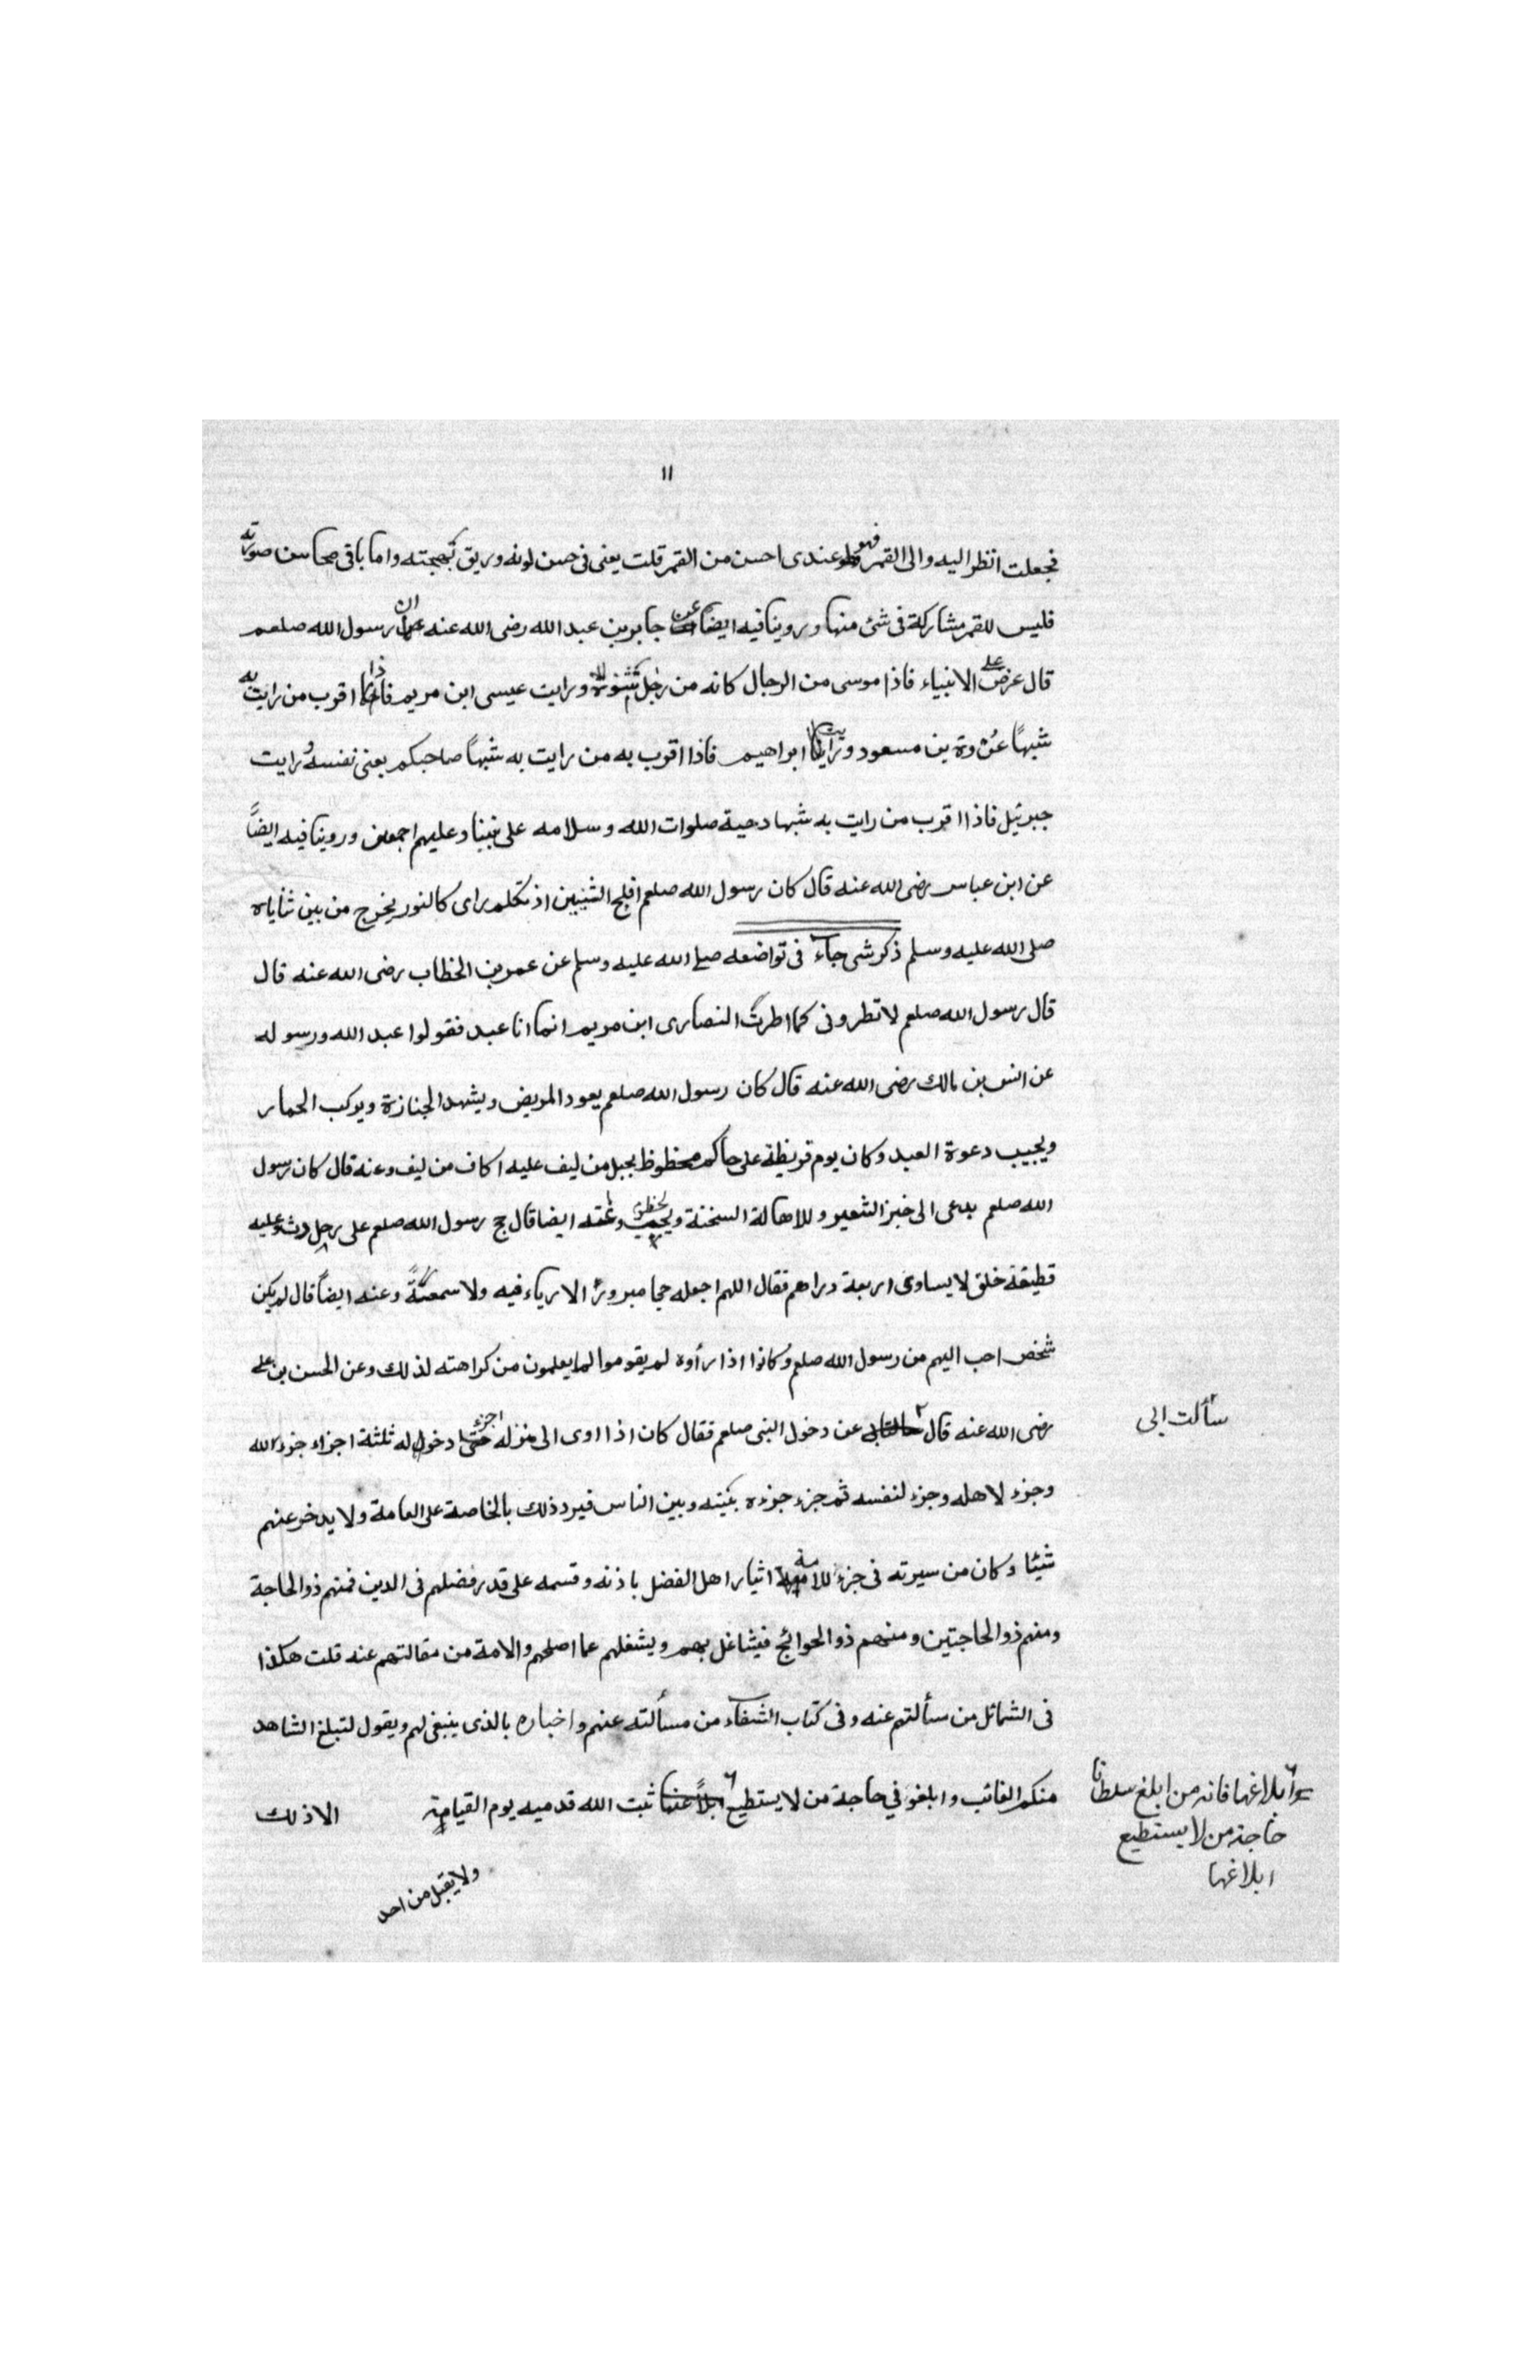 ١١
فجعلت انظر اليه والى القمر فهو عندى احسن من القمر قلت يعنى فى حسن لونه وبريق بهجته واما باقى محاسن صورته
فليس للقمر مشاركة فى شئ منها وروينا فيه ايضاً عن جابر بن عبد الله رضى الله عنه ان رسول الله صلعم
قال عرض على الانبياء فاذا موسى من الرجال كانه من رجل شنوة ورايت عيسى ابن مريم فاذا اقرب من رايت به
شبهاً عروة بن مسعود ورايت ابراهيم فاذا اقرب به من رايت به شبهاً صاحبكم يعنى نفسه ورايت
جبرئيل فاذا اقرب من رايت به شبها دحية صلوات الله وسلامه على نبينا وعليهم اجمعين وروينا فيه ايضاً
عن ابن عباس رضى الله عنه قال كان رسول الله صلعم افلج الثنيين اذ تكلم راى كالنور يخرج من بين ثناياه
صلى الله عليه وسلم ذكر شى جاء فى تواضعه صلى الله عليه وسلم عن عمر بن الخطاب رضى الله عنه قال
قال رسول الله صلعم لا تطرونى كما اطرت النصارى ابن مريم انما انا عبد فقولوا عبد الله ورسوله
عن انس بن مالك رضى الله عنه قال كان رسول الله صلعم يعود المريض ويشهد الجنازة ويركب الحمار
ويجيب دعوة العبد وكان يوم قريظة على حاكم مخظوظ بحبل من ليف عليه اكاف من ليف وعنه قال كان رسول
الله صلعم يدعى الى خبز الشعير وللاهالة السخنة ويجيب وعنه ايضا قال حج رسول الله صلعم على رحل رث وعليه
قطيفة خلق لا يساوى اربعة دراهم فقال اللهم اجعله حجا مبرورًا لا رياء فيه ولا سمعةً وعنه ايضاً قال لم يكن
شخص احب اليهم من رسول الله صلعم وكانوا اذا رأوه لم يقوموا لما يعلمون من كراهته لذلك وعن الحسن بن على
رضى الله عنه قال ٢ عن دخول النبى صلعم فقال كان اذا اوى الى منزله جزء دخوله ثلثة اجزاء جزء لله
سألت ابى
وجزء لاهله وجزء لنفسه ثم جزء جزءه بينه وبين الناس فيرد ذلك بالخاصة على العامة ولا يدخر عنهم
شيئا وكان من سيرته فى جزء الامة اثيار اهل الفضل باذنه وقسمه على قدر فضلهم فى الدين فمنهم ذو الحاجة
ومنهم ذو الحاجتين ومنهم ذو الحوائج فيشاغل بهم ويشغلهم عما اصلحهم والامة من مقالتهم عنه قلت هكذا
فى الشمائل من سألتهم عنه وفى كتاب الشفاء من مسألته عنهم واخباره بالذى ينبغى لهم ويقول لتبلغ الشاهد
منكم الغائب وابلغو فى حاجة من لا يستطيع ابلاً غنها ثبت الله قدميه يوم القيامة الا ذلك
ابلاغها فانه من ابلغ سلطانا
حاجة من لا يستطيع
ابلاغها
ولا يقبل من احد